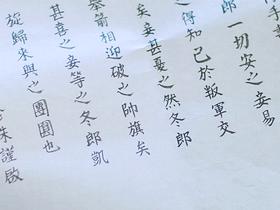 郎一切安之妾易
之得知已於叛軍交
矣妾甚憂之然冬郎
奉箭相迎破之帥旗矣
甚喜之妾等之冬郎凱
旋歸來與之團圓也
珠謹啟